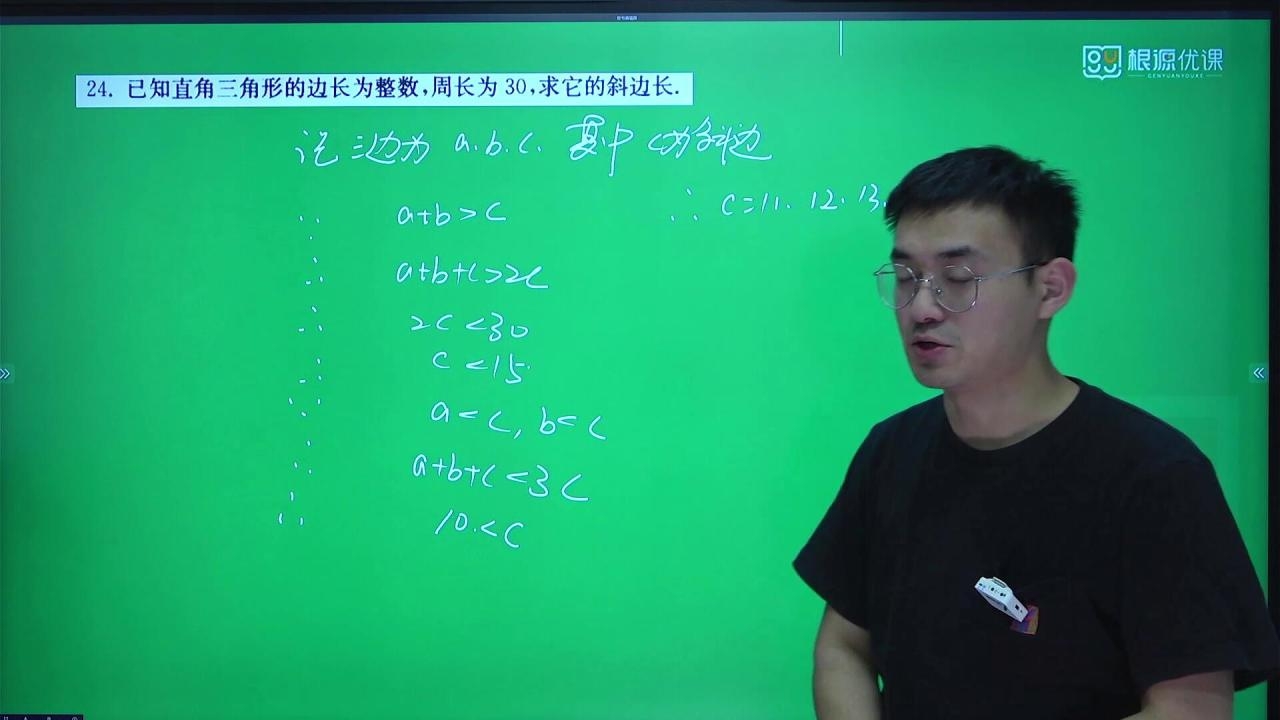 根源优课
GENYUANYOUKE
24. 已知直角三角形的边长为整数,周长为30,求它的斜边长.
设三边为 a.b.c. 其中 c为斜边
∵ a+b>c
∴ a+b+c>2c
∴ 2c<30
∴ c<15
∵ a<c, b<c
∴ a+b+c<3c
∴ 10<c
∴ c=11. 12. 13.